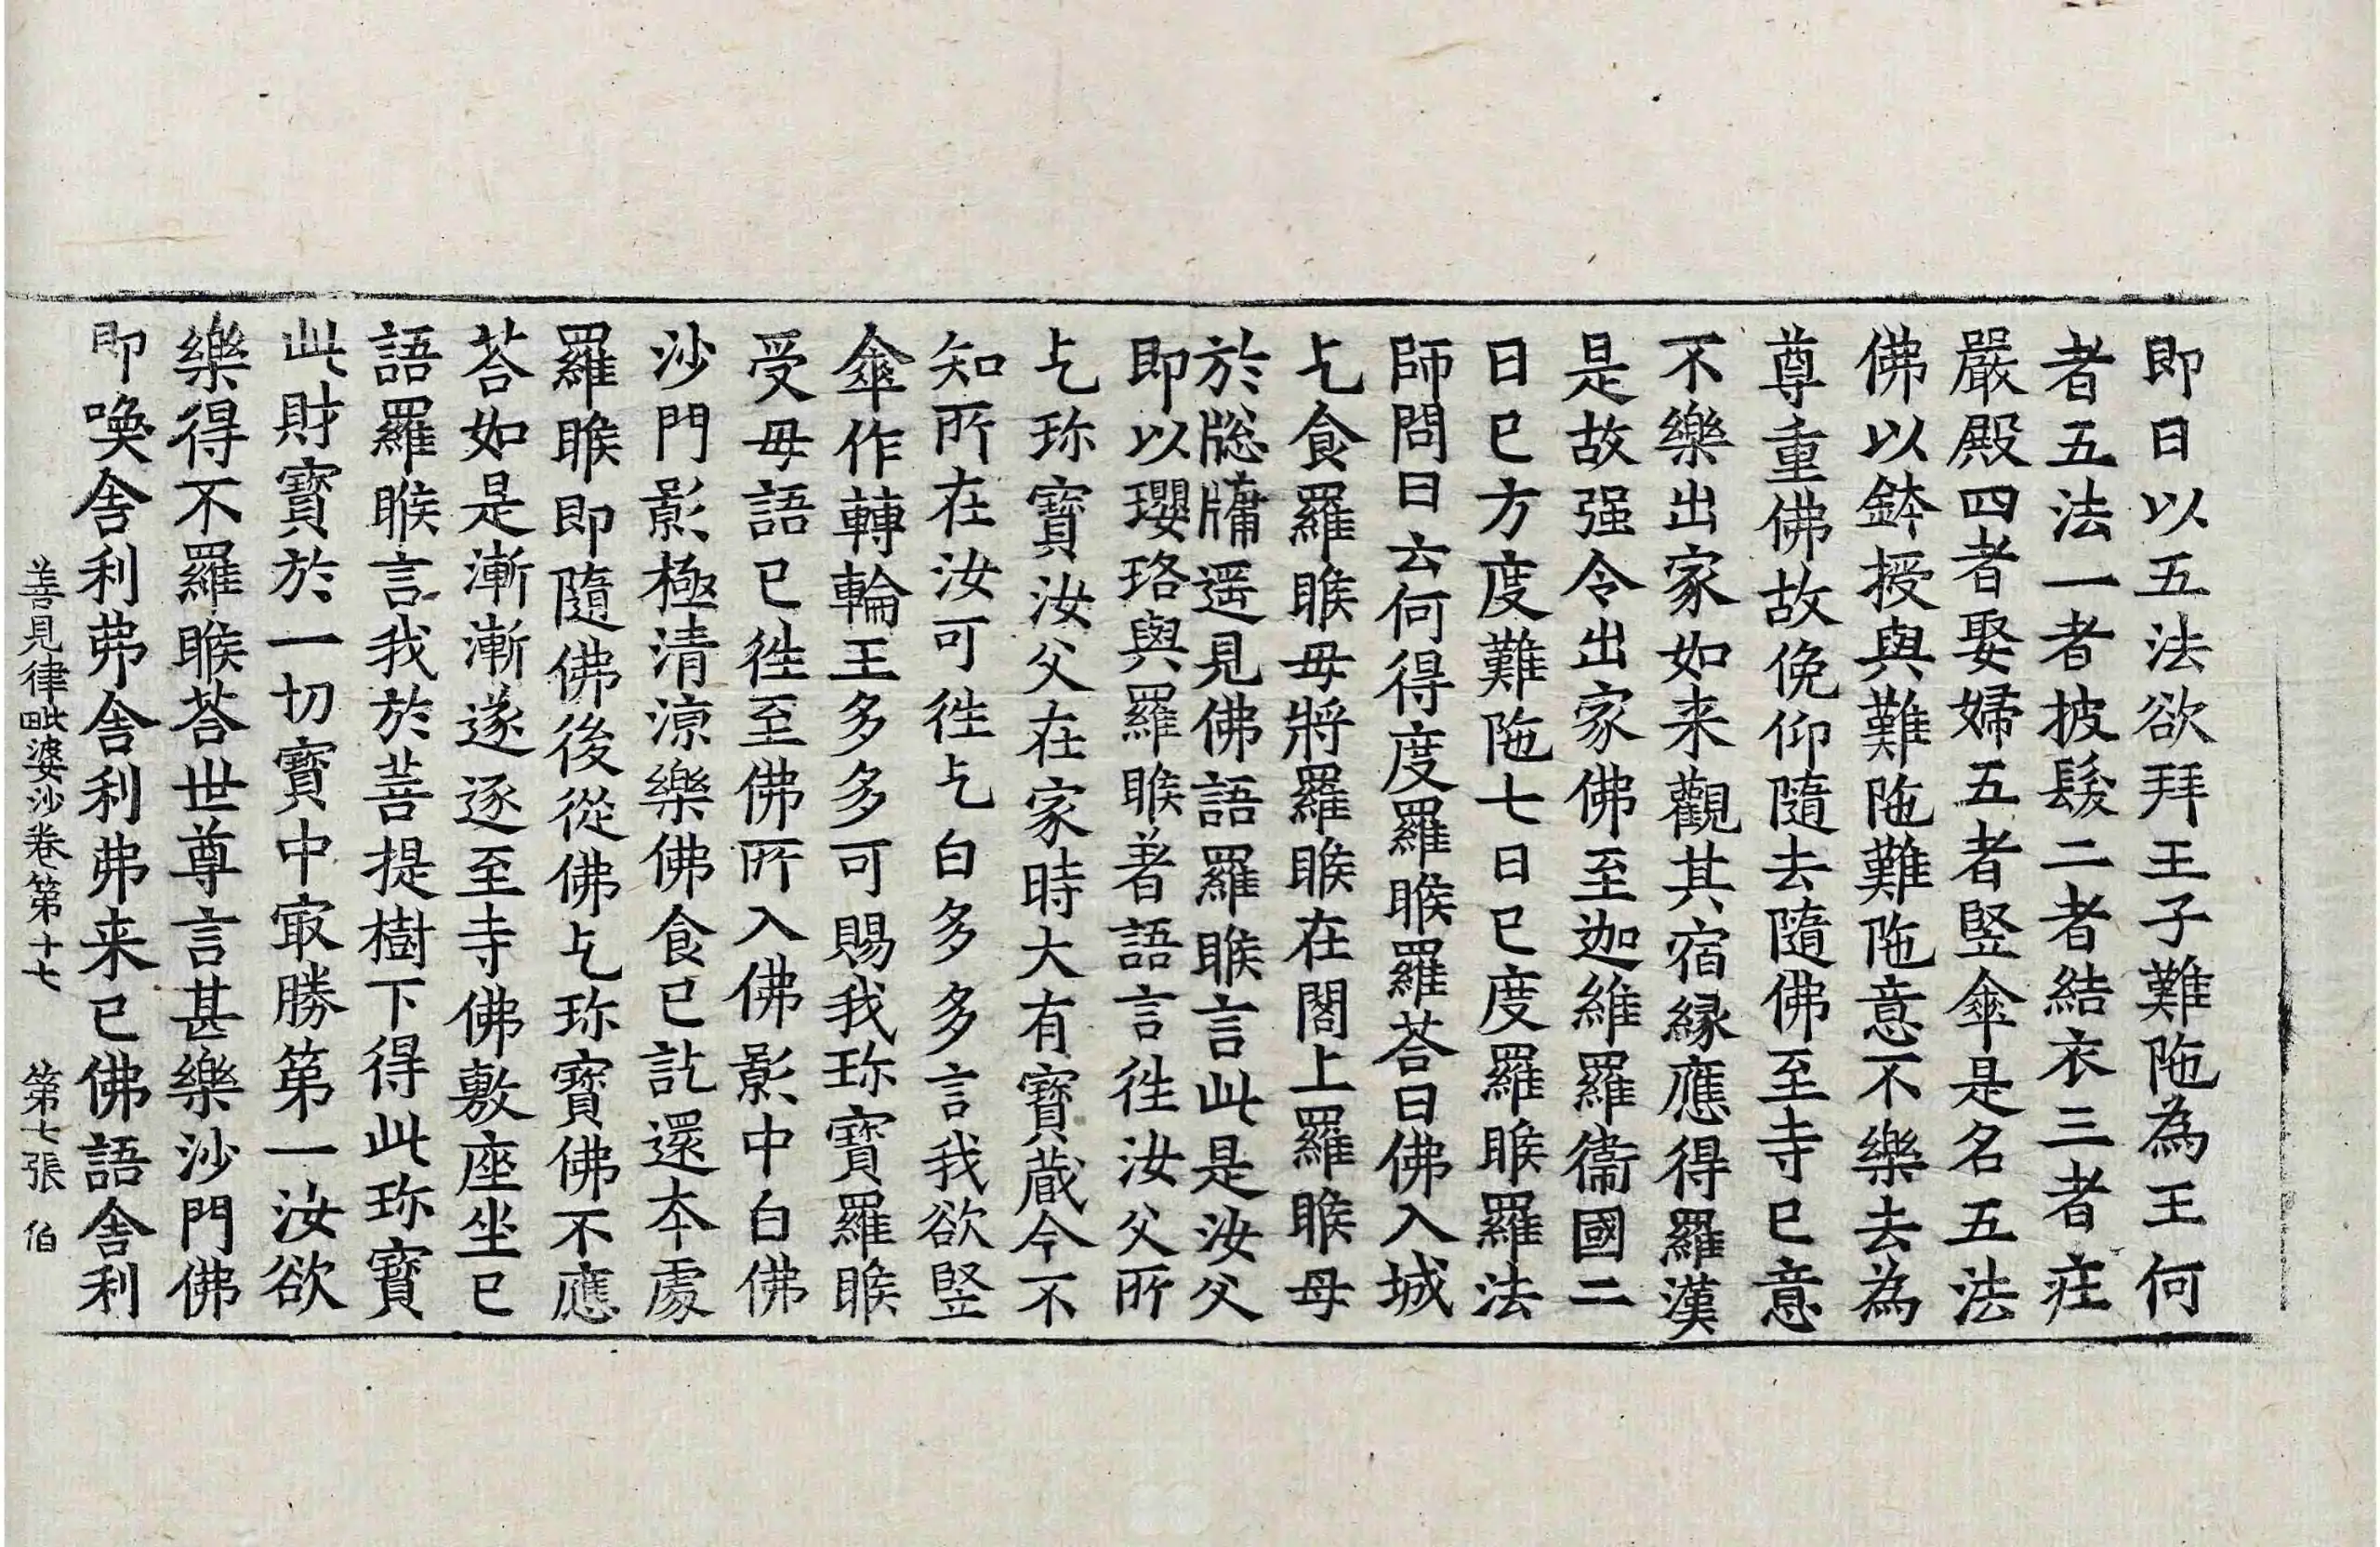 即日以五法欲拜王子難陁為王何
者五法一者披髮二者結衣三者疰
嚴殿四者娶婦五者竪傘是名五法
佛以鉢授與難陁難陁意不樂去為
尊重佛故俛仰隨去隨佛至寺已意
不樂出家如来觀其宿縁應得羅漢
是故强令出家佛至迦維羅衞國二
日已方度難陁七日已度羅睺羅法
師問曰云何得度羅睺羅荅曰佛入城
乞食羅睺母將羅睺在閣上羅睺母
於牕牗遥見佛語羅睺言此是汝父
即以瓔珞與羅睺著語言徃汝父所
乞珎寶汝父在家時大有寶蔵今不
知所在汝可徃乞白多多言我欲竪
傘作轉輪王多多可賜我珎寶羅睺
受母語已徃至佛所入佛影中白佛
沙門影極清涼樂佛食已訖還夲處
羅睺即隨佛後從佛乞珎寶佛不應
荅如是漸漸遂逐至寺佛敷座坐已
語羅睺言我於菩提樹下得此珎寶
此財寶於一切寶中㝡勝第一汝欲
樂得不羅睺荅世尊言甚樂沙門佛
即喚舎利弗舎利弗来已佛語舎利
善見律毗婆沙卷第十七 第七張 伯